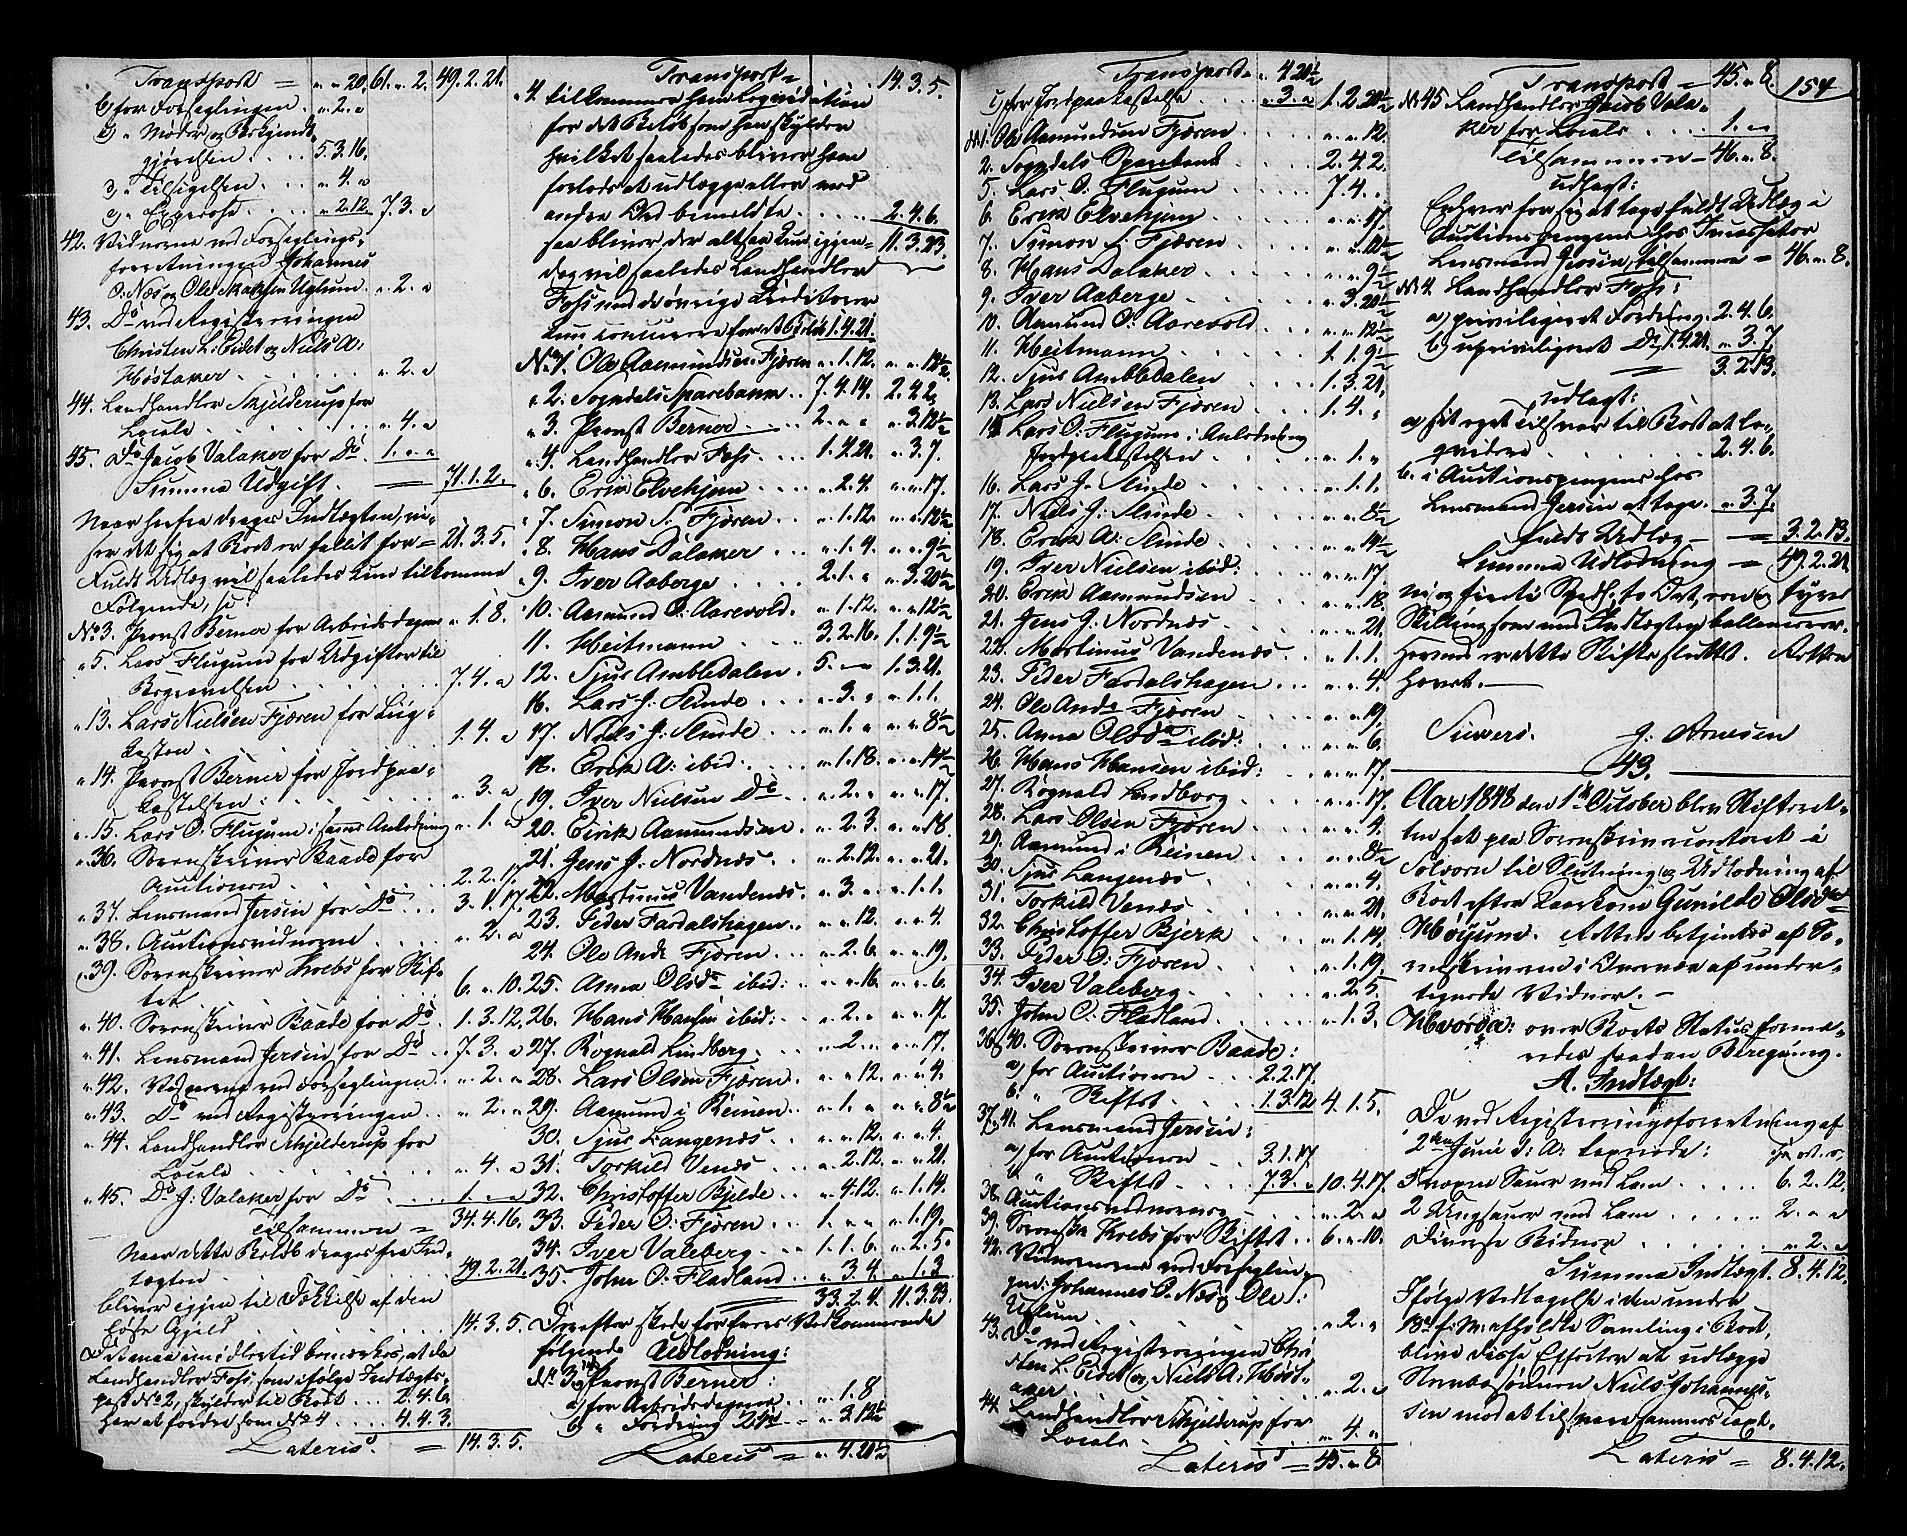 Transport = " " 20. 61. " 2. 49. 2. 21.
b, for Forseglingen . " 2. "
c, " Møder og Bekjendt-
gjørelsen . . . . 5. 3. 16.
d, " Tilsigelsen . . . " 4. "
" 2. 12. 7. 3. "
42. Vidnerne ved Forseglings-
forretningen Johannes
O: Næs og Ole Uglum . " 2. "
43. Do ved Registreringen
Christen L: Eidet og Niels A:
Høstaker . . . . " 2. "
44. Landhandler Skjelderup for
Locale . . . . " 4. "
45. Do Jacob Valaker for Do . 1. " "
Summa Udgift . 71. 1. 2.
Naar herfra drages Indtægten, vi-
ser det sig at Boet er fallit for = 21. 3. 5.
Fulds Udlæg vil saaledes kun tilkomme
Følgende, se:
No 3. Provst Berner for Arbeidsdagene " 1. 8.
" 5. Lars Flugum for Udgifter til
Begravelsen . . . . 7. 4. "
" 13. Lars Nielsen Fjæren for Liig-
kisten . . . . 1. 4. "
" 14. Provst Berner for Jordpaa-
kastelsen . . . . " 3. "
" 15. Lars O. Flugum i samme Anledning " 1. "
" 36. Sorenskriver Baade for
Auctionen . . . . 2. 2. 17.
" 37. Lensmand Jersin for Do . . . 3. 1. 17.
" 38. Auctionsvidnerne . . . . " 2. "
" 39. Sorenskriver Krebs for Skif-
tet . . . . 6. " 10.
" 40. Sorenskriver Baade for Do . 1. 3. 12.
" 41. Lensmand Jersin for Do . . 7. 3. "
" 42. Vidnerne ved Forseglingen . . " 2. "
" 43. Do ved Registreringen . . " 2. "
" 44. Landhandler Skjelderup for
Locale . . . . " 4. "
" 45. Do J. Valaker for Do . . . 1. " "
Tilsammen = 34. 4. 16.
Naar dette Beløb drages fra Ind-
tægten . . . . 49. 2. 21.
bliver igjen til Dækkelse af den
øvrige Gjeld . . . . 14. 3. 5.
Denne imidlertid bemærkes, at da
Landhandler Foss som ifølge Indtægts-
post No 2, skylder til Boet . . 2. 4. 6.
har at fordre som No 4 . . . 4. 4. 3.
Lateris = 14. 3. 5.
Transport = . . 14. 3. 5.
" 4. tilkommer ham Liqvidation
for det Beløb som han skylder
hvilket saaledes bliver ham
forlods at udlægge eller med
andre Ord bemeldte . . . . 2. 4. 6.
saa bliver der altsaa kun igjen = 11. 3. 23.
dog vil saaledes Landhandler
Foss med de øvrige Creditorer
kun concurrere for et Beløb 1. 4. 21.
No 1. Ole Aamundsen Fjæren " 1. 12. " " 12½.
" 2. Sogndals Sparebank . . 7. 4. 14. 2. 4. 2.
" 3. Provst Berner . . . 2. " " " 3. 12½
" 4. Landhandler Foss . . . 1. 4. 21. " 3. 7.
" 6. Erik Elvekjen . . . " 2. 4. " " 17.
" 7. Simon S. Fjæren . . . " 1. 12. " " 12½
" 8. Hans Dalaker . . . " 1. 4. " " 9½
" 9. Iver Aaberge . . . . 2. 1. " " 3. 20½
" 10. Aamund O. Aarevold . " 1. 12. " " 12½
11. Heitmann . . . . 3. 2. 16. 1. 1. 9½
12. Sjur Ambledalen . 5. " " 1. 3. 21.
16. Lars J. Slinde . . . " 3. " " 1. 1.
17. Niels J. Slinde . . . " 1. " " " 8½
18. Erik A: ibid. . . . " 1. 18. " " 14½
19. Iver Nielsen Do . . " 2. " " " 17.
20. Eirik Aamundsen . . " 2. 3. " " 18.
21. Jens J. Nordnæs . . " 2. 12. " " 21.
22. Martinus Vandenæs . " 3. " " 1. 1.
23. Peder Fardalshagen . . " " 12. " " 4.
24. Ole Andr Fjæren . . " 2. 6. " " 19.
25. Anna Olsdr ibid: . . " " 16. " " 6.
26. Hans Hansen ibid: . . " 2. " " " 17.
27. Rognald Lindborg . . . " 2. " " " 17.
28. Lars Olsen Fjæren . . " " 12. " " 4.
29. Aamund i Reinen . . " 1. " " " 8½
30. Sjur Langenæs . . . " " 12. " " 4.
31. Torkild Venæs . . . " 2. 12. " " 21.
32. Christoffer Bjelde . . " 4. 12. " 1. 14.
33. Peder O. Fjæren . . 1. " " " 1. 19.
34. Iver Valeberg . . . 1. 1. 6. " 2. 5.
35. John O: Fladland . . " 3. 4. " 1. 3.
33. 2. 4. 11. 3. 23.
Derefter skede for fares Vedkommende
følgende Udlodning:
No 3 14 Provst Berner:
a, for Arbeidsdagene . . " 1. 8
b, " Fordring 2 Spd . . " 3. 12½
Lateris = " 4. 20½
Transport = " 4. 20½
c, for Jordpaakastelse . . . " 3. " 1. 2. 20½
No 1. Ole Aamundsen Fjæren . . " " 12.
2. Sogndals Sparebank . . . 2. 4. 2.
5. Lars O. Flugum . . . . 7. 4. "
6. Erik Elvekjen . . . . " " 17.
7. Simon S. Fjæren . . . . " " 12½
8. Hans Dalaker . . . . " " 9½
9. Iver Aaberge . . . . " 3. 20½
10. Aamund O. Aarevold . . . " " 12½
11. Heitmann . . . . 1. 1. 9½
12. Sjur Ambledalen . . . . 1. 3. 21.
13. Lars Nielsen Fjæren . . . 1. 4. "
15. Lars O. Flugum i Anledning
Jordpaakastelsen . . . . " 1. "
16. Lars J. Slinde . . . . " 1. 1.
17. Niels J. Slinde . . . . " " 8½
18. Erik A: Slinde . . . . " " 14½
19. Iver Nielsen ibid: . . . " " 17.
20. Erik Aamundsen . . . . " " 18.
21. Jens J. Nordnæs . . . . " " 21.
22. Martinus Vandenæs . . . " 1. 1.
23. Peder Fardalshagen . . . " " 4.
24. Ole Andr Fjæren . . . . " " 19.
25. Anna Olsdr ibid: . . . " " 6.
26. Hans Hansen ibid: . . . " " 17.
27. Rognald Lindborg . . . " " 17.
28. Lars Olsen Fjæren . . . " " 4.
29. Aamund i Reinen . . . . " " 8½
30. Sjur Langenæs . . . . " " 4.
31. Torkild Venæs . . . . " " 21.
32. Christoffer Bjerk . . . . " 1. 14.
33. Peder O. Fjæren . . . . " 1. 19.
34. Iver Valeberg . . . . " 2. 5.
35. John O. Fladland . . . . " 1. 3.
36, 40. Sorenskriver Baade:
a, for Auctionen . . . 2. 2. 17.
b, " Skiftet . . . . 1. 3. 12. 4. 1. 5.
37, 41. Lensmand Jersin:
a, for Auctionen . . . 3. 1. 17.
" Skiftet . . . . 7. 3. " 10. 4. 17.
38. Auctionsvidnerne . . . . " 2. "
39. Sorenskr Krebs for Skiftet . . 6. " 10.
42. Vidnerne ved Forseglin-
gen: Johannes O. Næs og Ole S:
Uglum . . . . " 2. "
43. Do ved Registreringen Chri-
sten L. Eidet og Niels A. Høst-
aker . . . . " 2. "
44. Landhandler Skjelderup for
Locale . . . . " 4. "
Lateris = 45. " 8
Transport = 45. " 8. 154
No 45 Landhandler Jacob Vala-
ker for Locale . . . . 1. " "
Tilsammen = 46. " 8.
udlagt:
Enhver for sig at tage fuldt Udlæg i
Auctionspengene hos Incassator
Lensmand Jersin, tilsammen = 46. " 8.
No 4. Landhandler Foss:
a, priviligeret Fordring . 2. 4. 6.
b, upriviligeret Do 1. 4. 21. " 3. 7
3. 2. 13.
udlagt:
a, sit eget tilsvar til Boet at li-
qvidere . . . . 2. 4. 6.
b. i Auctionspengene hos
Lensmand Jersin at tage . " 3. 7.
fulds Udlæg = 3. 2. 13.
Summa Udlodning = 49. 2. 21.
ni og firti Spdl: to Ort, een og tyve
Skilling som med Indtægten ballancerer.
Hermed er dette Skifte sluttet. Retten
hævet.
Siewers. J. Arnesen
43.
Aar 1848 den 1te October blev Skifteret-
ten sat paa Sorenskrivercontoret i
Solvorn til Slutning og Udlodning af
Boet efter Kaarkone Gunilde Olsdr
Høyum. Retten betjentes af So-
renskriveren i Overvær af under-
tegnede Vidner. –
Hvorda: over Boets Status forma-
redes saadan Beregning.
A. Indtægt:
De ved Registreringsforretning af
2den Juni d: A: taxerede: Spd. ort. s.
3 voxne Sauer med Lam . . . . 6. 2. 12.
2 Ungsauer med Lam . . . . 2. " "
Diverse . . . . " 2. "
Summa Indtægt . 8. 4. 12.
Ifølge Vedtagelse i den under
13de f: M: afholdte Samling i Boet,
blive disse Effecter at udlægge
Stervbosønnen Niels Johannes-
sen mod at tilsvare sammes Taxt.
Lateris = 8. 4. 12.